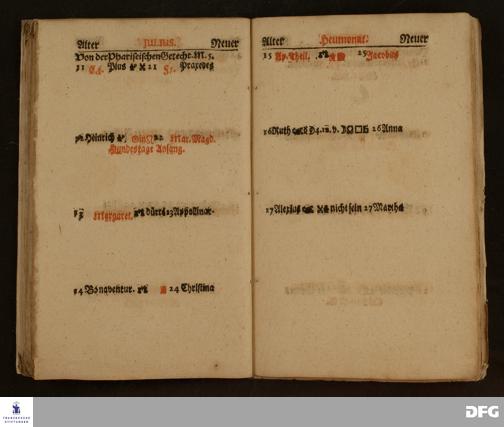 Alter JULIUS. Neuer
Von der Phariseischen Gerecht. M. 5.
11 Pius 21 Praxedes
12 Heinrich 22 Mar. Magd.
Hundestage Anfang.
13 Margaret. dürre 23 Apollinar.
14 Bonaventur. 24 Christina
Alter Heumonat. Neuer
15 Ap. Theil. 25 Jacobus
16 Ruth 26 Anna
17 Alexius nicht sein 27 Martha
FRANCKESCHE
STIFTUNGEN
DFG